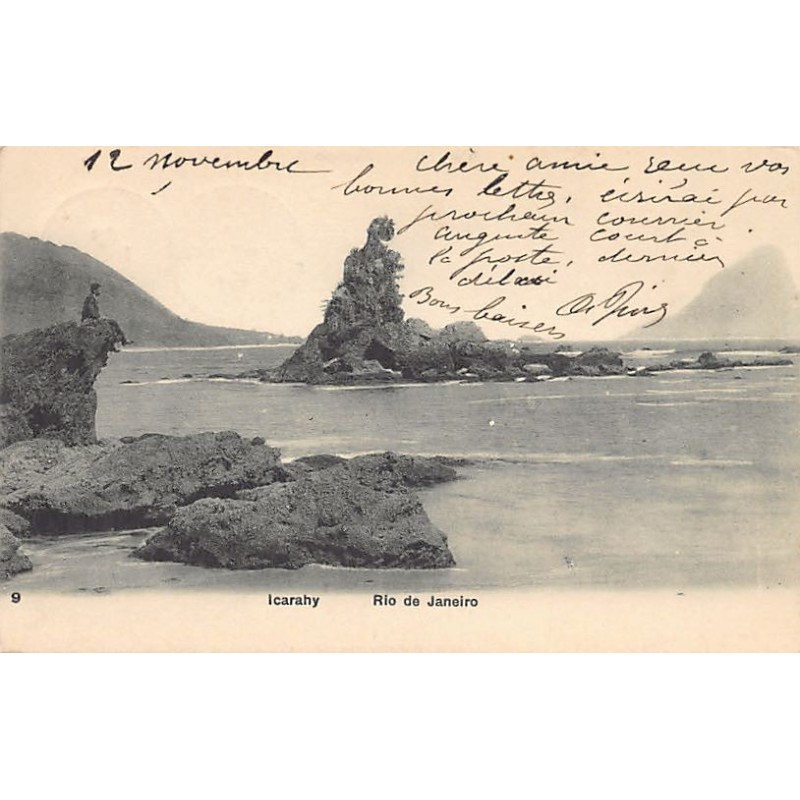 12 novembre
chère amie reçu vos
bonnes lettre, écrirai par
prochain courrier
auguste court à
la poste, dernier
délai
Bons baisers
9
Icarahy Rio de Janeiro